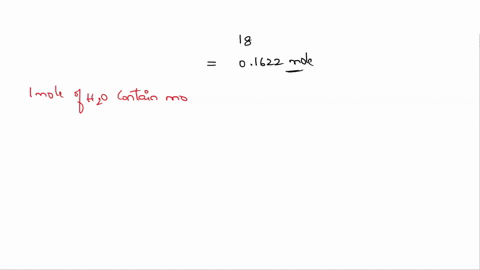 18
= 0.1622 mole
1 mole of H₂O contain mo